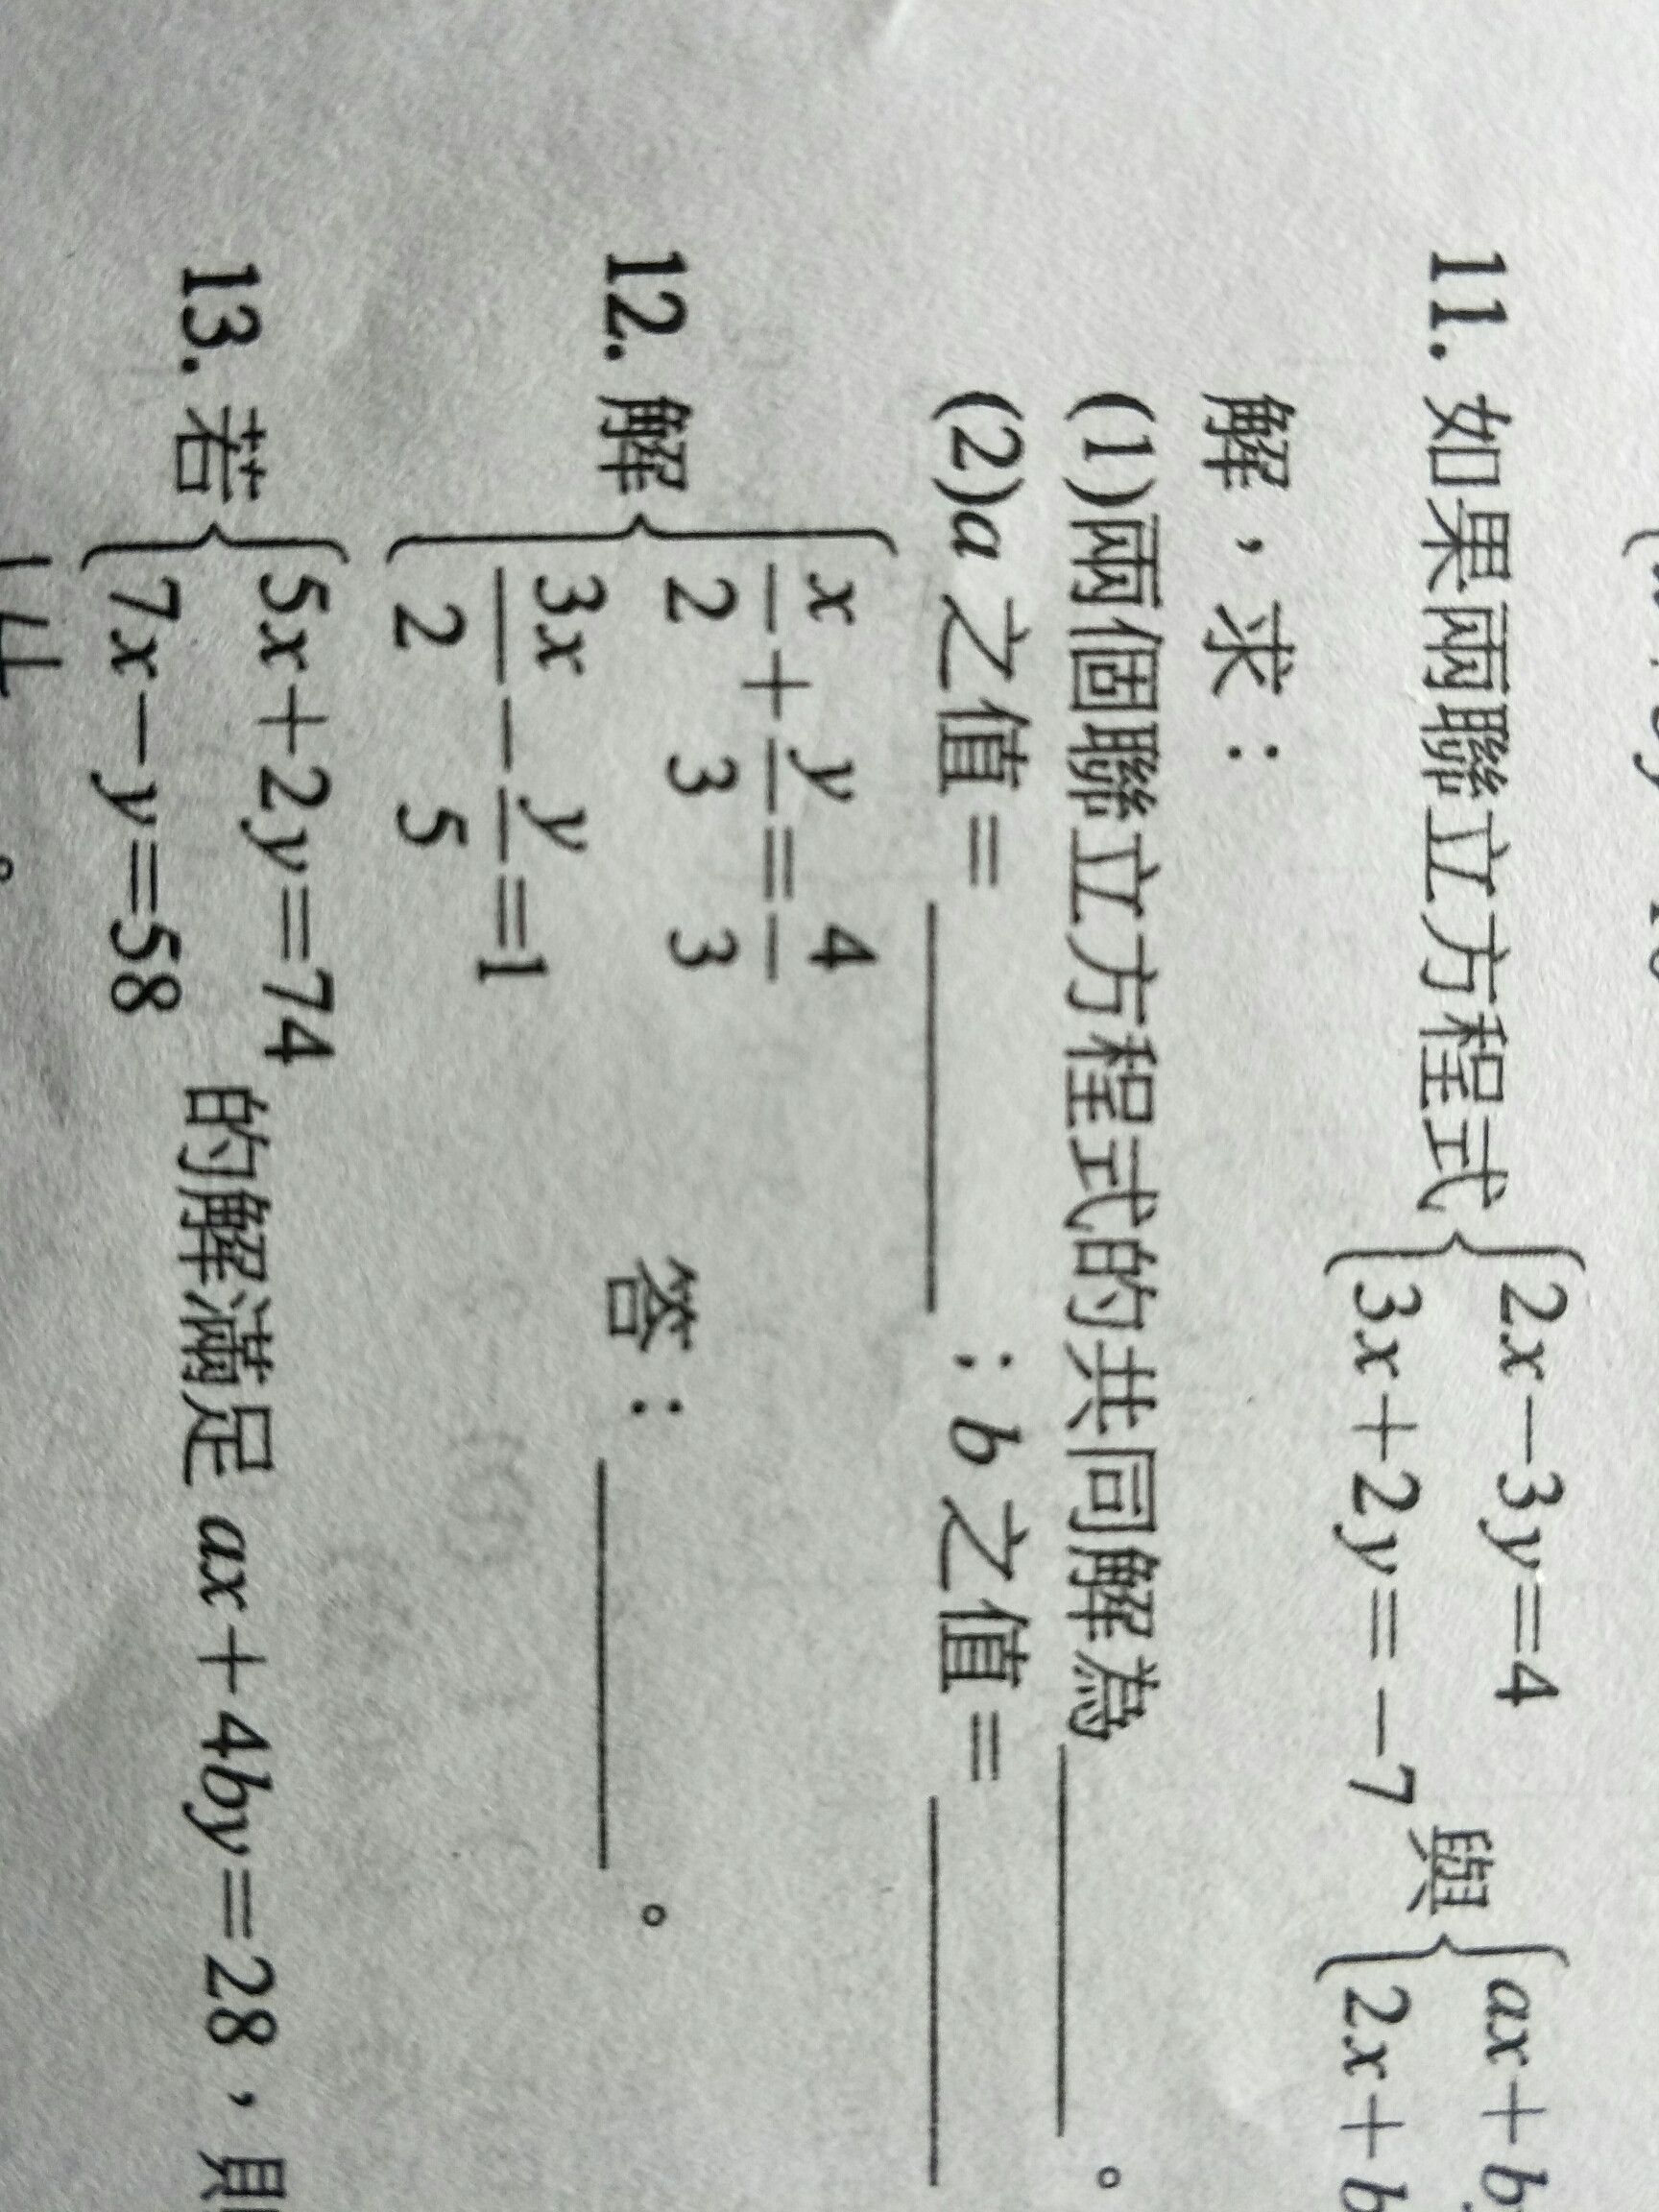 11. 如果兩聯立方程式 { 2x－3y＝4 與 { ax＋b
3x＋2y＝－7 2x＋b
解，求：
(1)兩個聯立方程式的共同解為＿＿＿＿。
(2)a 之值＝＿＿＿＿；b 之值＝＿＿＿＿
12. 解 { x/2＋y/3＝4/3
3x/2－y/5＝1
答：＿＿＿＿。
13. 若 { 5x＋2y＝74
7x－y＝58
的解滿足 ax＋4by＝28，則